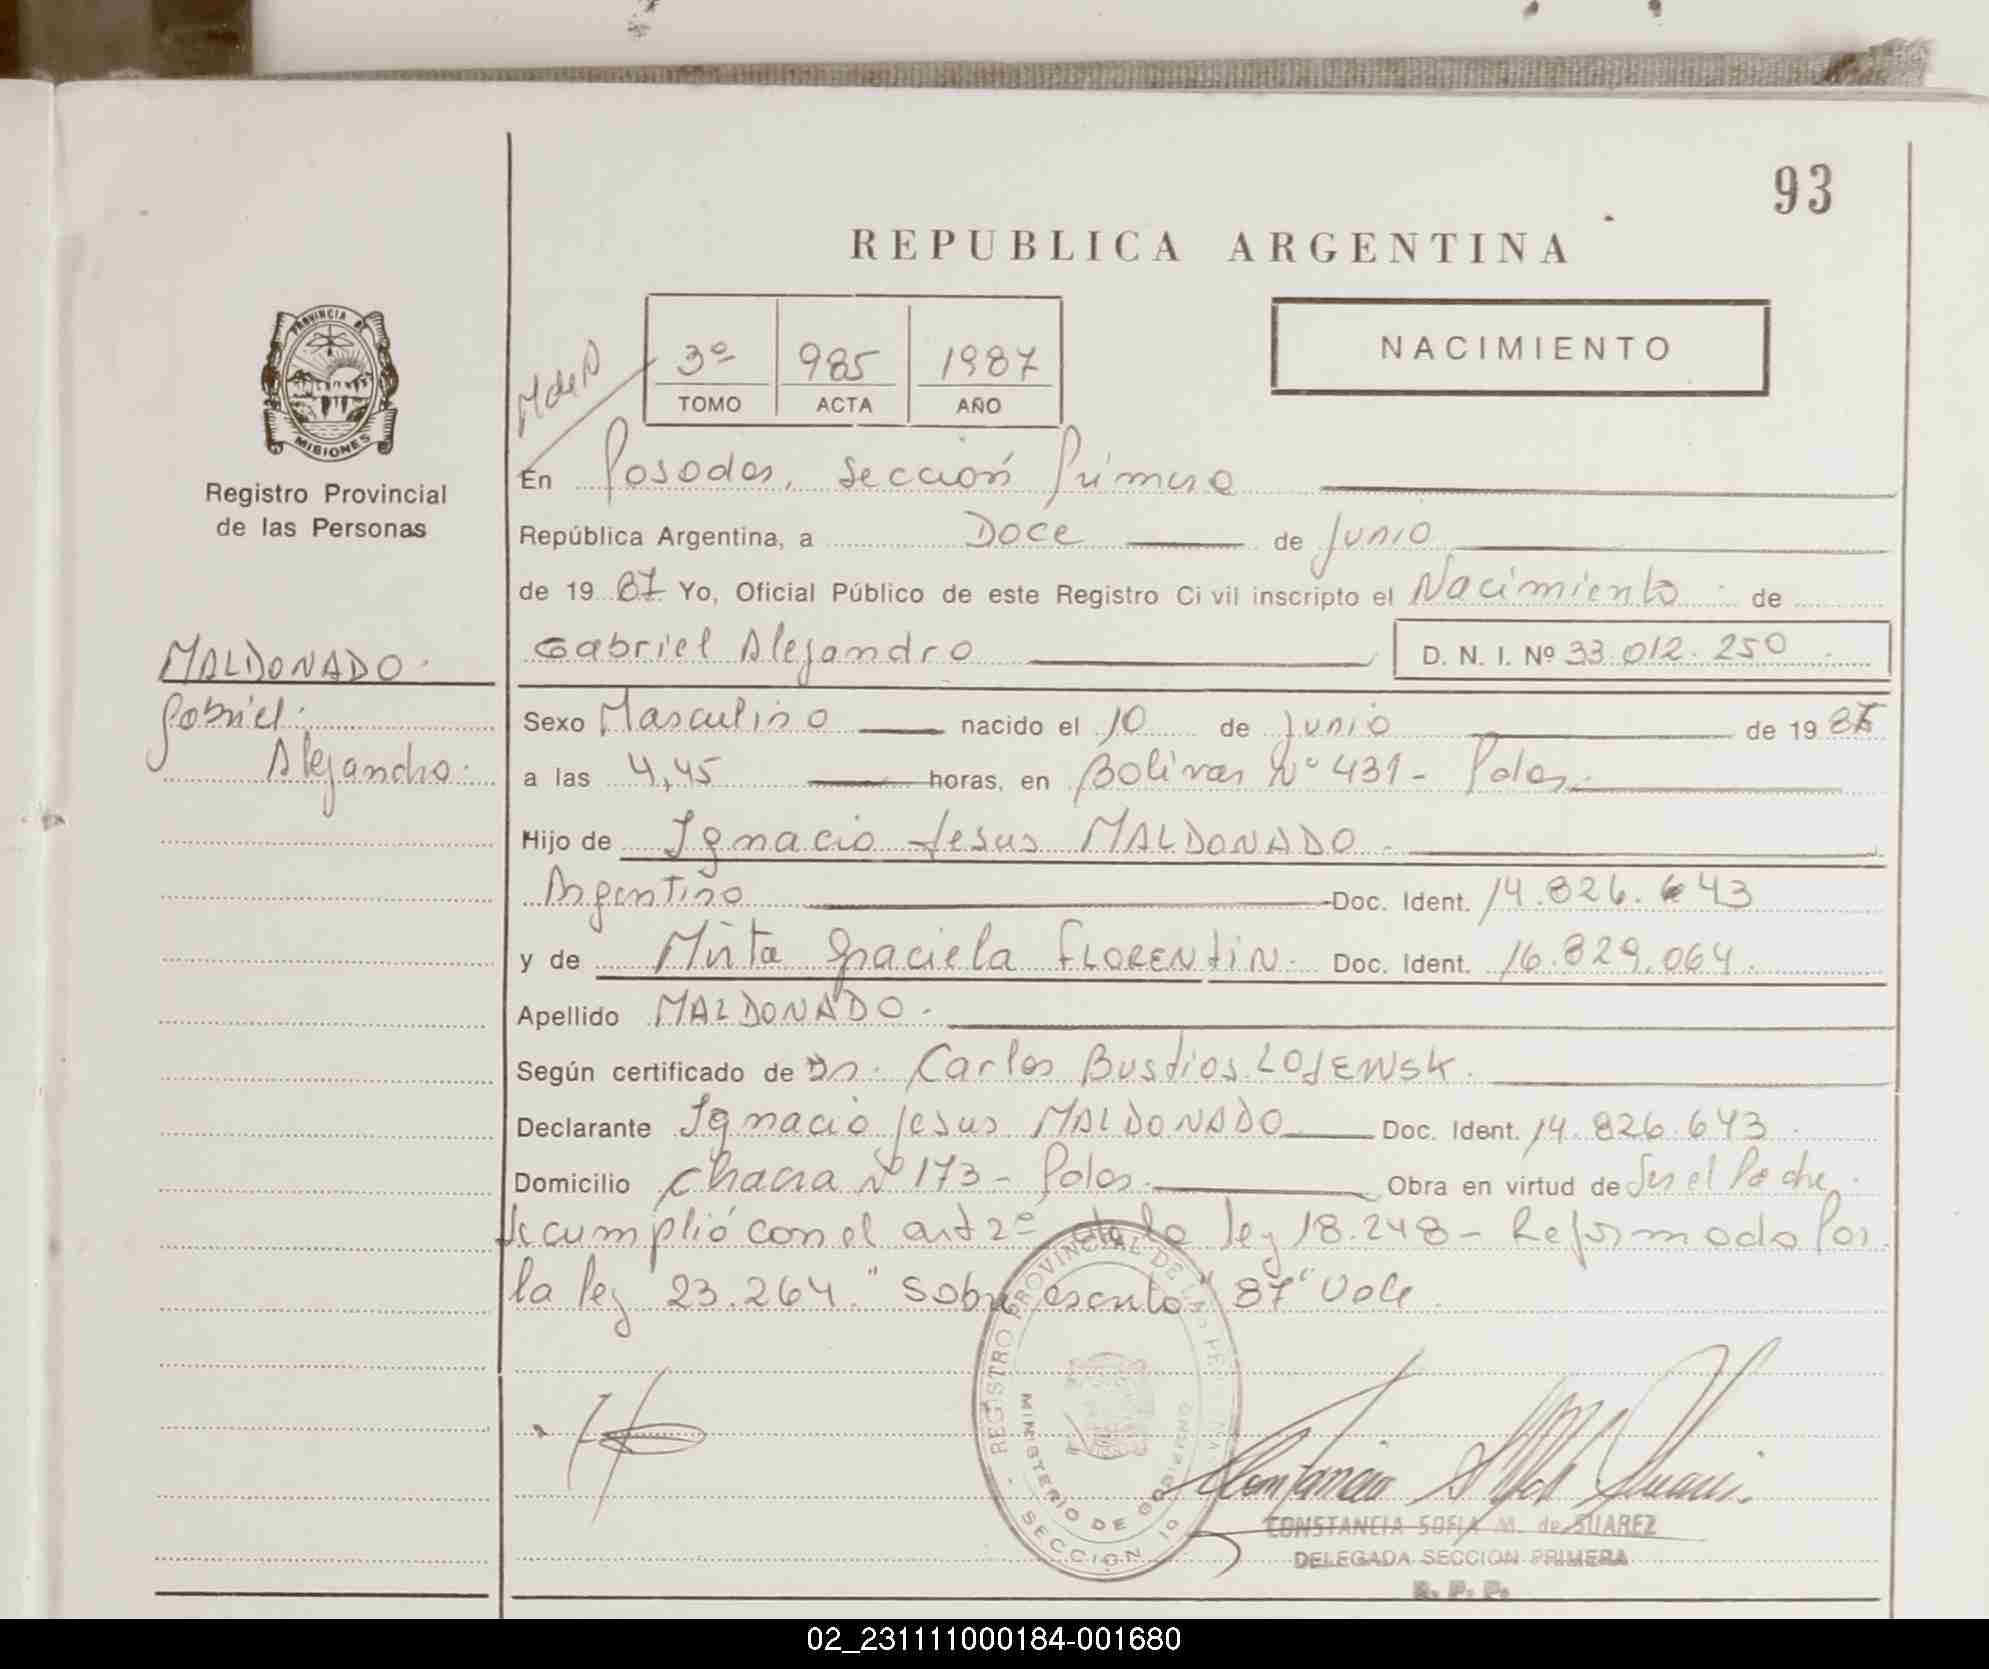 93
REPUBLICA ARGENTINA
PROVINCIA DE
MISIONES
Registro Provincial
de las Personas
3º 985 1987
TOMO ACTA AÑO
NACIMIENTO
En Posadas, Sección Primera
República Argentina, a Doce de Junio
de 19 87 Yo, Oficial Público de este Registro Civil inscripto el Nacimiento de
Gabriel Alejandro D. N. I. Nº 33.012.250
MALDONADO
Gabriel
Alejandro
Sexo Masculino nacido el 10 de Junio de 19 87
a las 4,45 horas, en Bolivar Nº 431 - Pdas.
Hijo de Ignacio Jesus MALDONADO
Argentino Doc. Ident. 14.826.643
y de Mirta Graciela FLORENTIN. Doc. Ident. 16.829.064.
Apellido MALDONADO.
Según certificado de Dr. Carlos Bustios LOJEWSK.
Declarante Ignacio Jesus MALDONADO Doc. Ident. 14.826.643
Domicilio Chacra Nº 173 - Pdas. Obra en virtud de Ser el Padre.
Se cumplió con el art 2º de la ley 18.248 - Reformado por
la ley 23.264. "Sobre escrito "87" Vale.
REGISTRO PROVINCIAL DE LAS PERSONAS
MINISTERIO DE GOBIERNO
SECCION 1º
CONSTANCIA SOFIA M. de SUAREZ
DELEGADA SECCION PRIMERA
R. P. P.
02_231111000184-001680